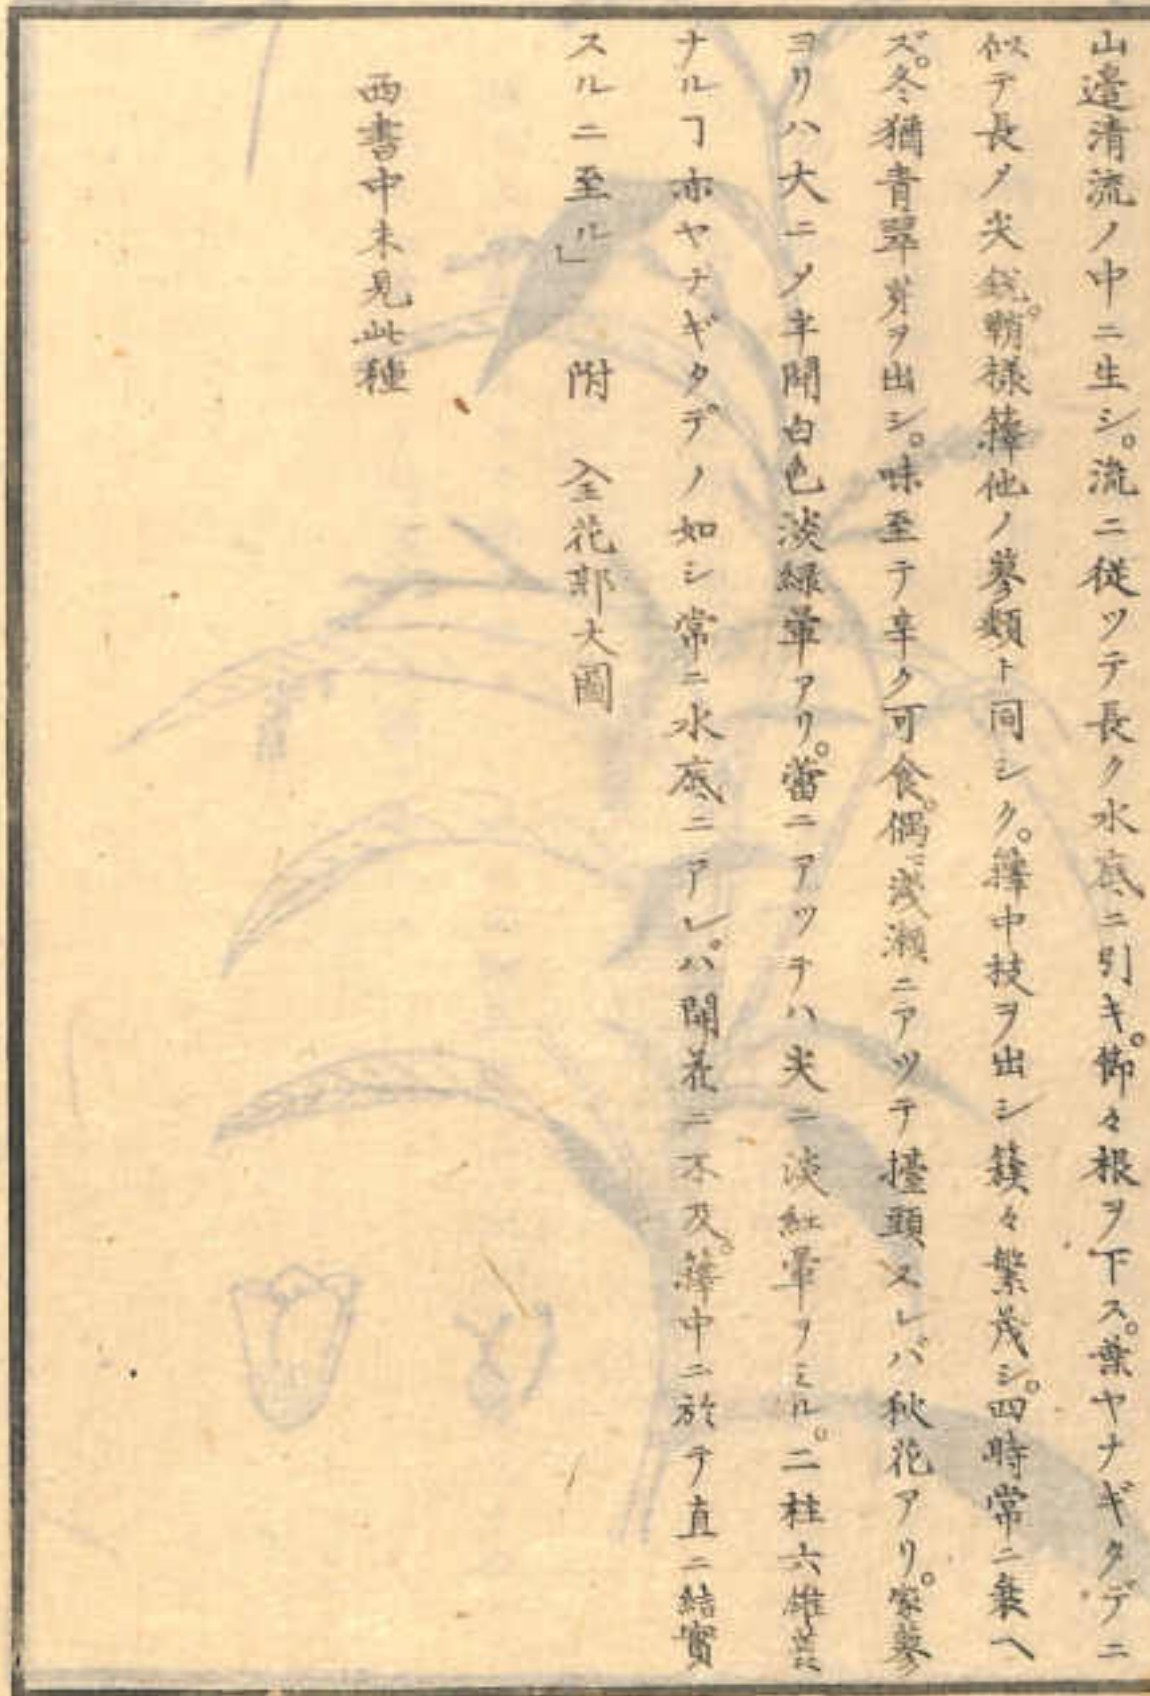 山邉清流ノ中ニ生シ。流ニ従ツテ長ク水底ニ引キ。節々根ヲ下ス。葉ヤナギタデニ
似テ長メ尖鋭。鞘様籜他ノ蓼類ト同シク。籜中枝ヲ出シ簇々繁茂シ。四時常ニ衰ヘ
ズ。冬猶青翠芽ヲ出シ。味至テ辛ク可食。偶ニ浅瀬ニアツテ擡頭スレバ秋花アリ。家蓼
ヨリハ大ニメ半開白色淡緑暈アリ。蕾ニアツテハ尖ニ淡紅暈ヲミル。二柱六雄蕊
ナルヿ亦ヤナギタデノ如シ常ニ水底ニアレバ開花ニ不及。籜中ニ於テ直ニ結實
スルニ至ル」　附　全花郭大圖
西書中未見此種